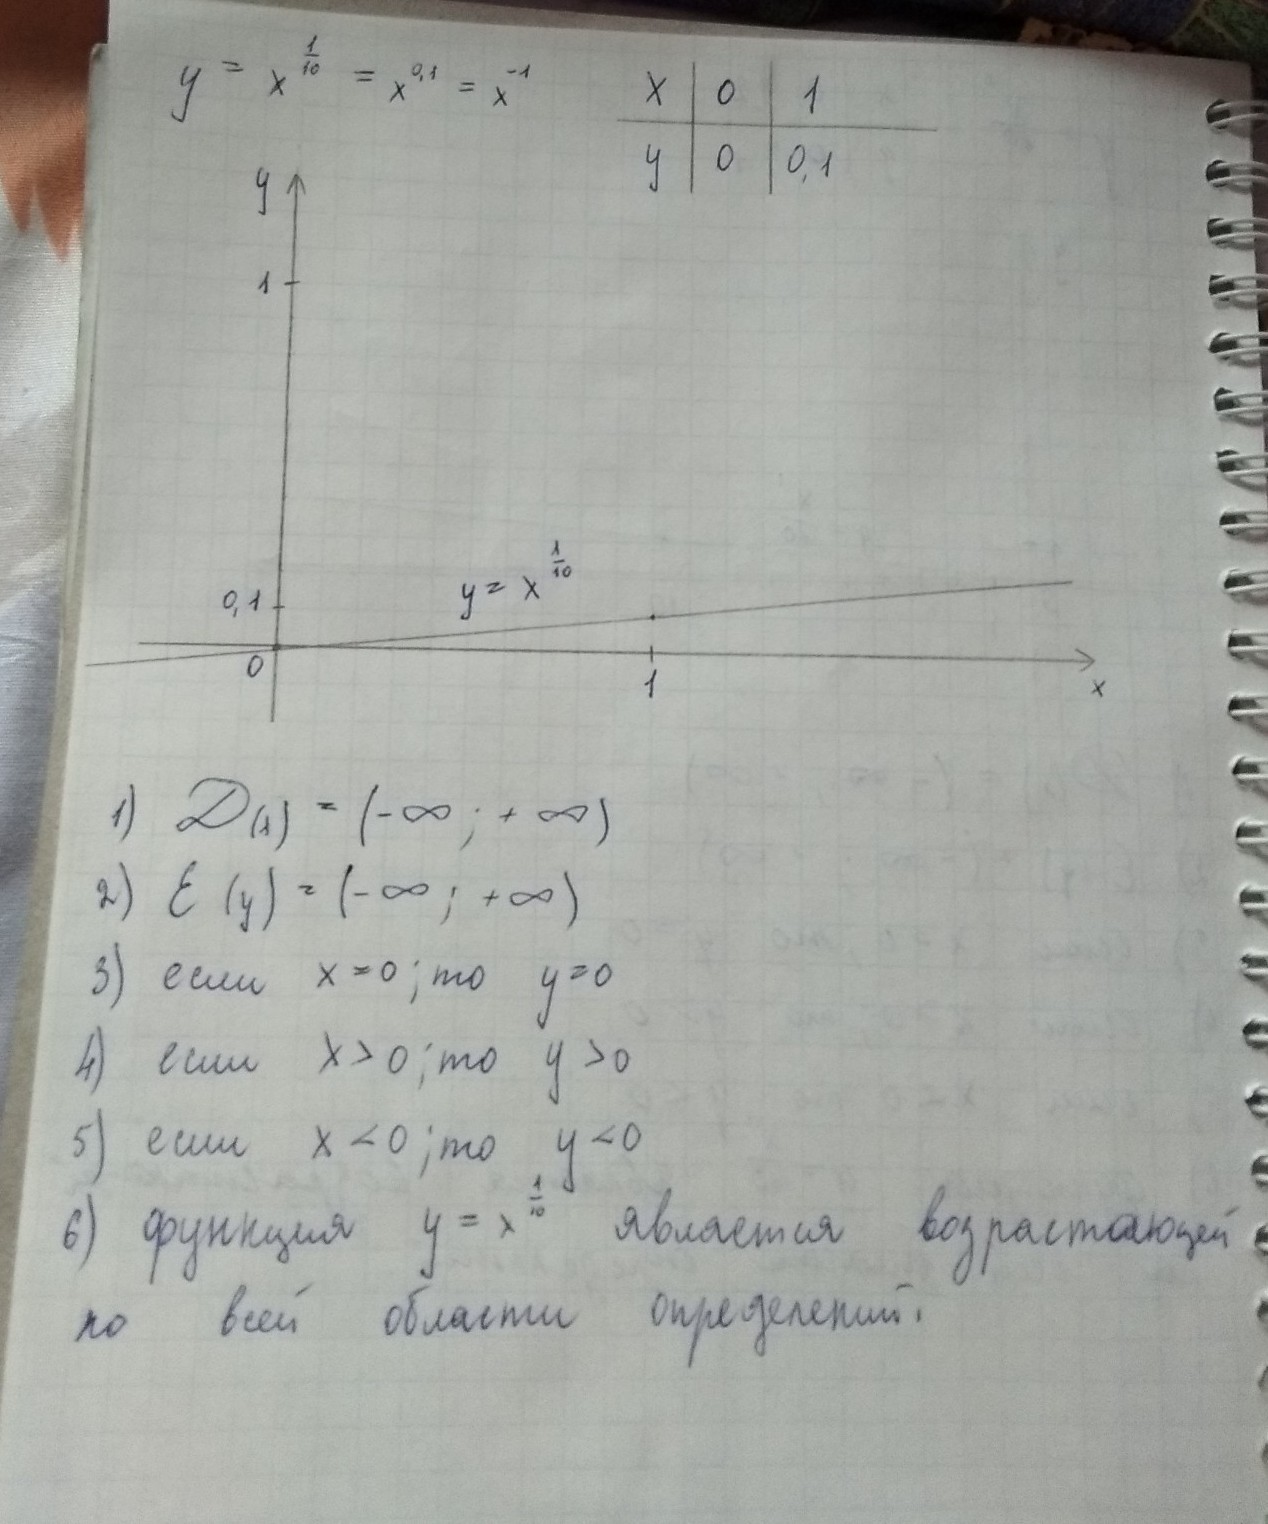 y = x^{\frac{1}{10}} = x^{0,1} = x^{-1}
x | 0 | 1
y | 0 | 0,1
y
1
y = x^{\frac{1}{10}}
0,1
0
1
x
1) D(x) = (-∞; +∞)
2) E(y) = (-∞; +∞)
3) если x=0; то y=0
4) если x>0; то y>0
5) если x<0; то y<0
6) функция y = x^{\frac{1}{10}} является возрастающей
по всей области определений.